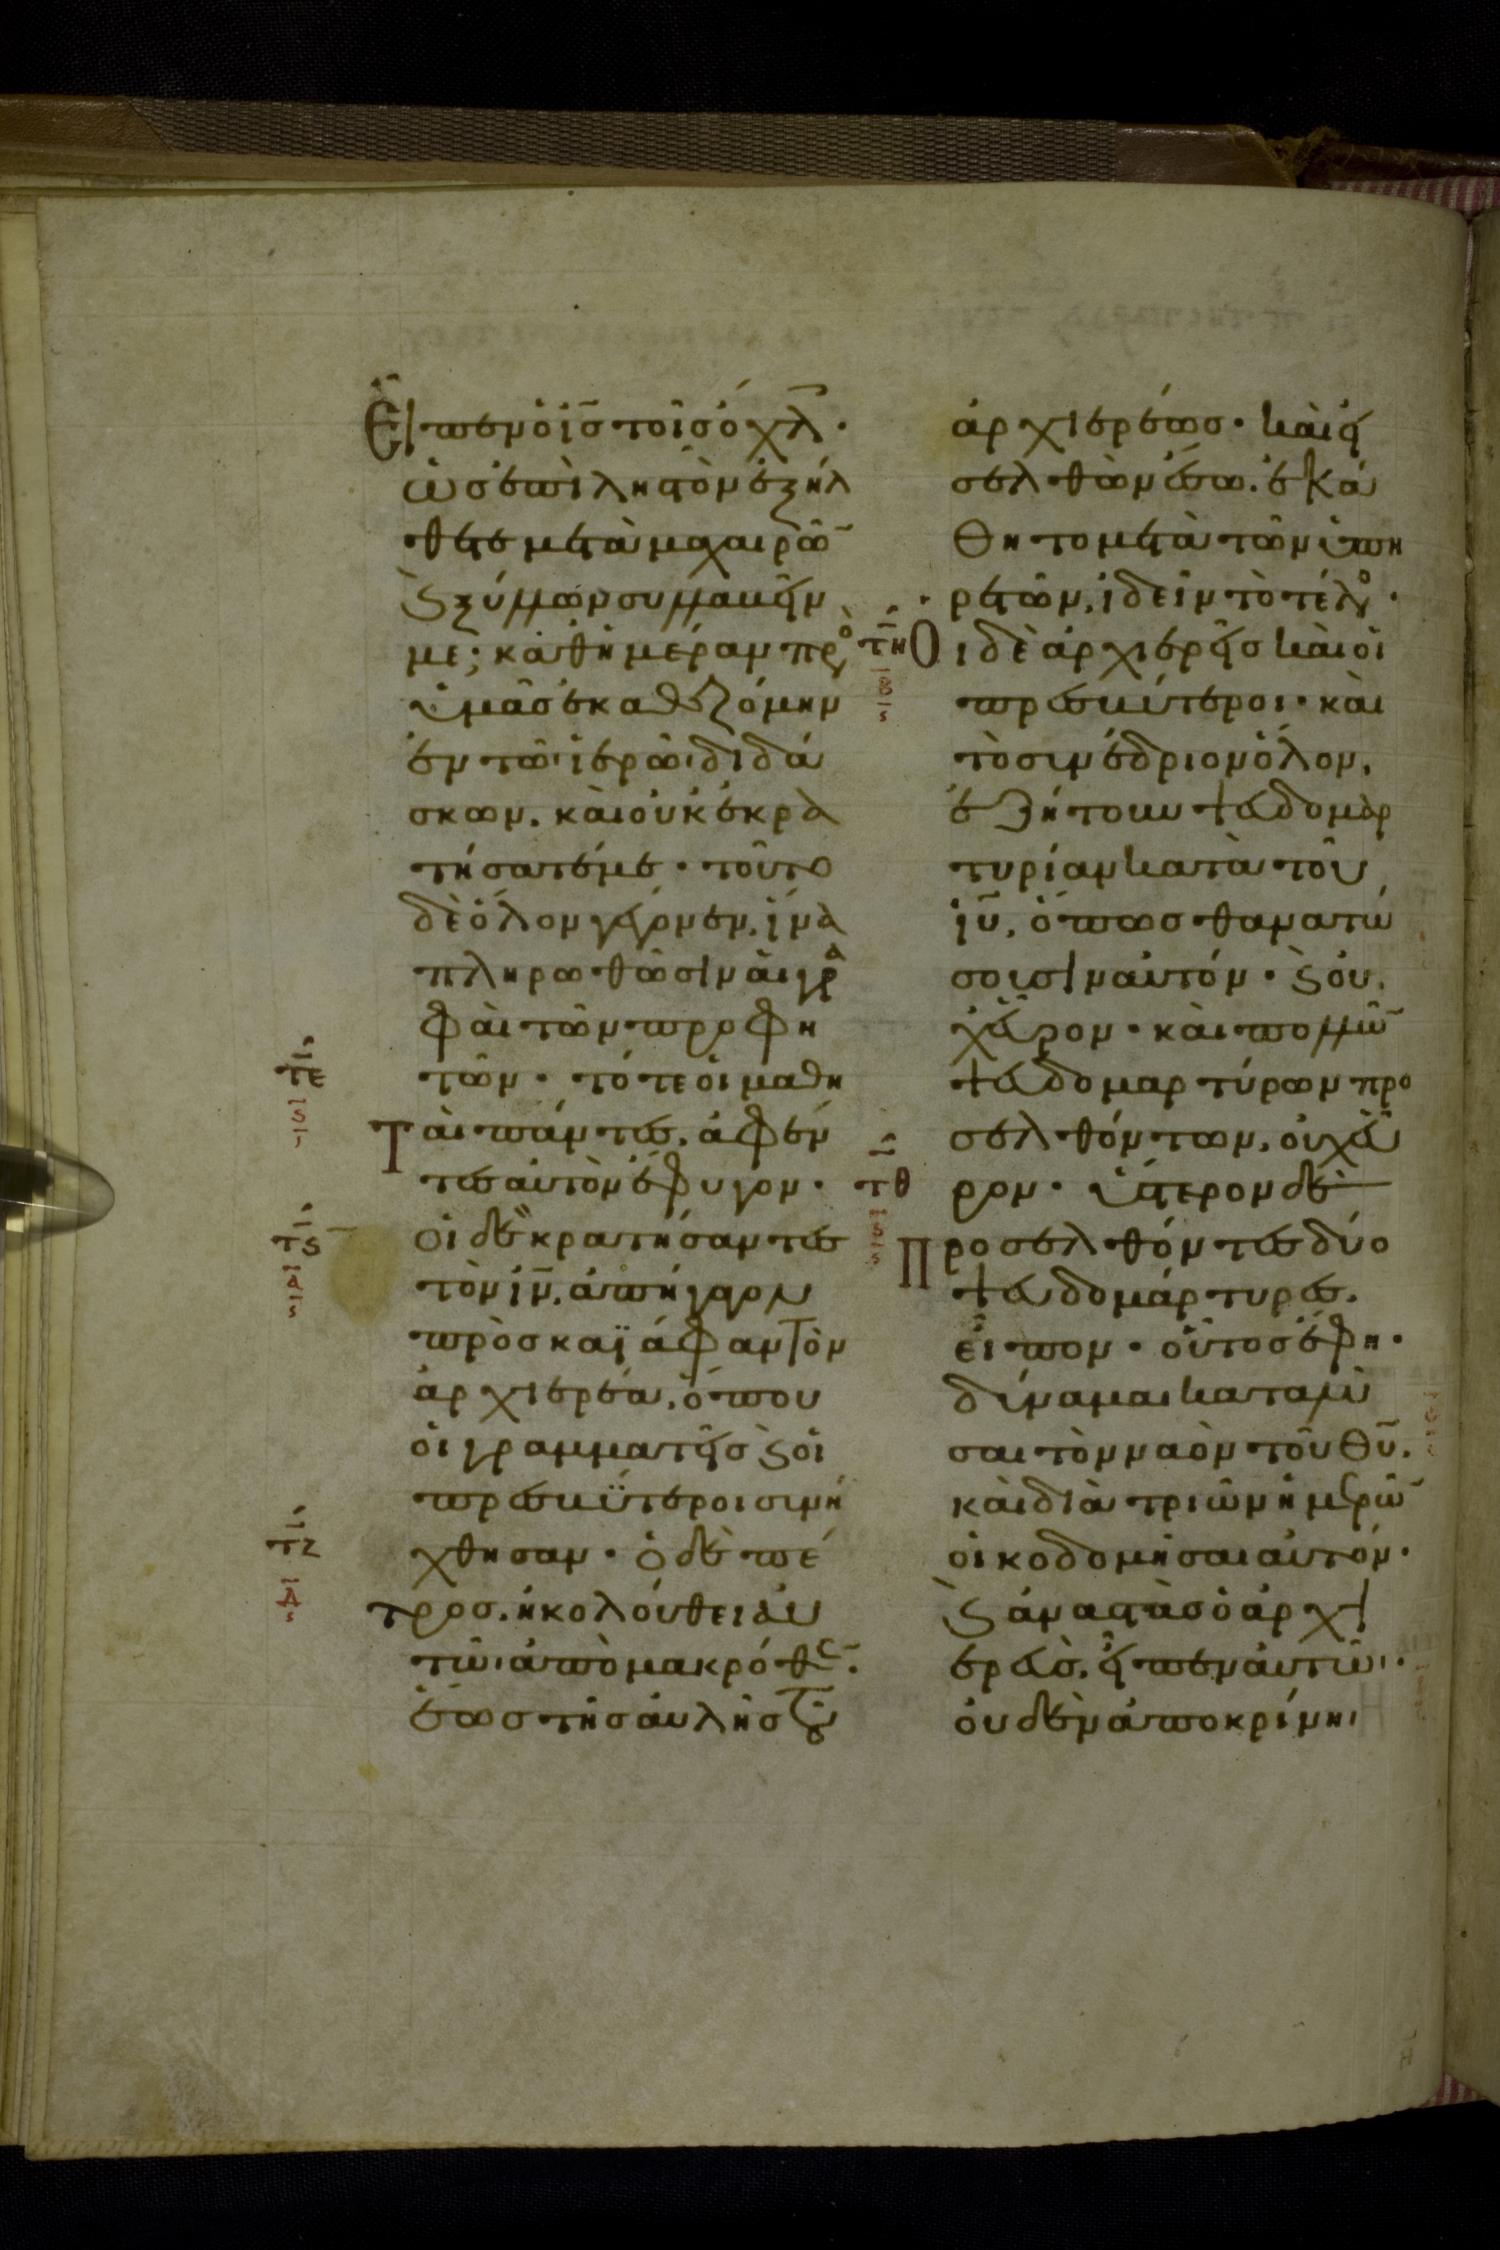 Εἶπεν ὁ ι̅ς̅ τοῖς ὄχλ̅·
ὡς ἐπὶ ληστὸν ἐξήλ
θετε μετὰ μαχαιρῶ̅
ϗ ξύλλων συλλαβεῖν
με; καθ' ἡμέραν πρὸς
ὑμᾶς ἐκαθεζόμην
ἐν τῶι ἱερῶι διδά
σκων. καὶ οὐκ ἐκρα
τήσατέ με· τοῦτο
δὲ ὅλον γέγονεν, ἵνα
πληρωθῶσιν αἱ γρα
φαὶ τῶν προφη
τῶν· τότε οἱ μαθη
Ταὶ πάντες, ἀφέν
τες αὐτὸν ἔφυγον·
οἱ δὲ κρατήσαντες
τὸν ι̅ν̅, ἀπήγαγον
πρὸς καϊάφαν τὸν
ἀρχιερέα, ὅπου
οἱ γραμματεῖς ϗ οἱ
πρεσβϋτεροι συνή
χθησαν· ὁ δὲ πέ
τρος. ἠκολούθει αὐ
τῶι ἀπὸ μακρόθε̅.
ἕως τῆς αὐλῆς τοῦ
τ̅ε̅
ϛ̅
τ̅ϛ̅
α̅
τ̅ζ̅
δ̅
ἀρχιερέως· καὶ εἰ
σελθὼν ἔσω. ἐκά
θητο μετὰ τῶν ὑπη
ρετῶν, ἰδεῖν τὸ τέλος·
Οἱ δὲ ἀρχιερεῖς καὶ οἱ
πρεσβύτεροι· καὶ
τὸ συνέδριον ὅλον,
ἐζήτουν ψευδομαρ
τυρίαν κατὰ τοῦ
ι̅υ̅, ὅπως θανατώ
σουσιν αὐτόν· ϗ οὐ,
χεῦρον· καὶ πολλῶ̅
ψευδομαρτύρων προ
σελθόντων, οὐχ εὗ
ρον· ὕστερον δὲ
Προσελθόντες δύο
ψευδομάρτυρες.
εἶπον· οὗτος ἔφη·
δύναμαι καταλῦ
σαι τὸν ναὸν τοῦ θ̅υ̅.
καὶ διὰ τριῶν ἡμερῶ̅
οἰκοδομῆσαι αὐτόν·
ϗ ἀναστὰς ὁ ἀρχι
ερεὺς, εἶπεν αὐτῶι·
οὐδὲν ἀποκρίνηι
τ̅η̅
β̅
τ̅θ̅
ϛ̅